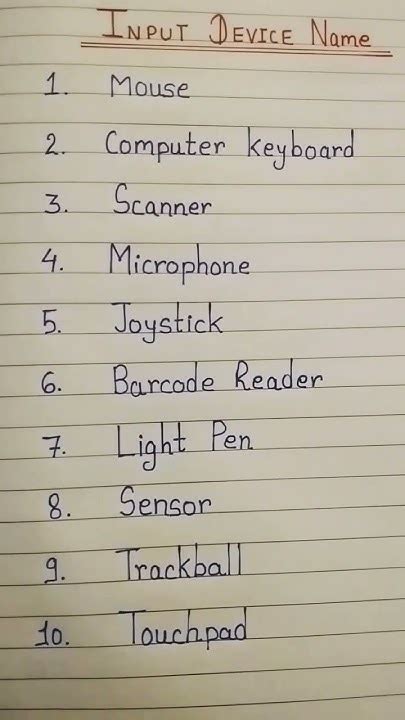 INPUT DEVICE Name
1. Mouse
2. Computer keyboard
3. Scanner
4. Microphone
5. Joystick
6. Barcode Reader
7. Light Pen
8. Sensor
9. Trackball
10. Touchpad